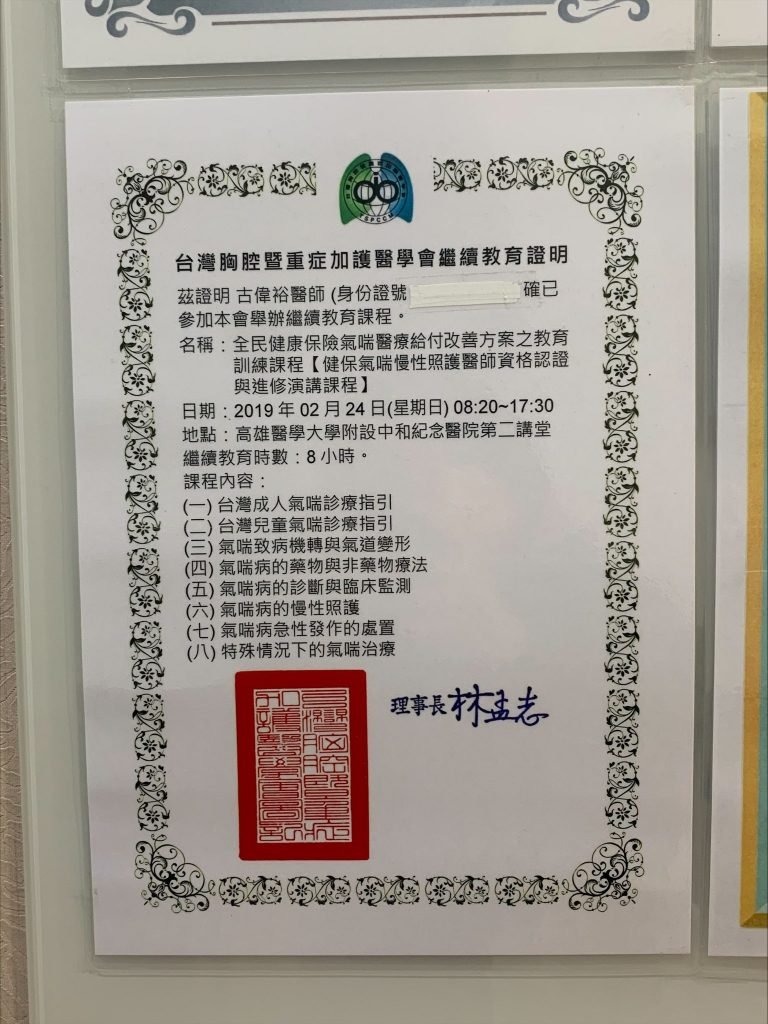 TSPCCM
台灣胸腔暨重症加護醫學會繼續教育證明
茲證明 古偉裕醫師 (身份證號 確已
參加本會舉辦繼續教育課程。
名稱：全民健康保險氣喘醫療給付改善方案之教育
訓練課程【健保氣喘慢性照護醫師資格認證
與進修演講課程】
日期：2019 年 02 月 24 日(星期日) 08:20~17:30
地點：高雄醫學大學附設中和紀念醫院第二講堂
繼續教育時數：8 小時。
課程內容：
(一) 台灣成人氣喘診療指引
(二) 台灣兒童氣喘診療指引
(三) 氣喘致病機轉與氣道變形
(四) 氣喘病的藥物與非藥物療法
(五) 氣喘病的診斷與臨床監測
(六) 氣喘病的慢性照護
(七) 氣喘病急性發作的處置
(八) 特殊情況下的氣喘治療
理事長 林孟志